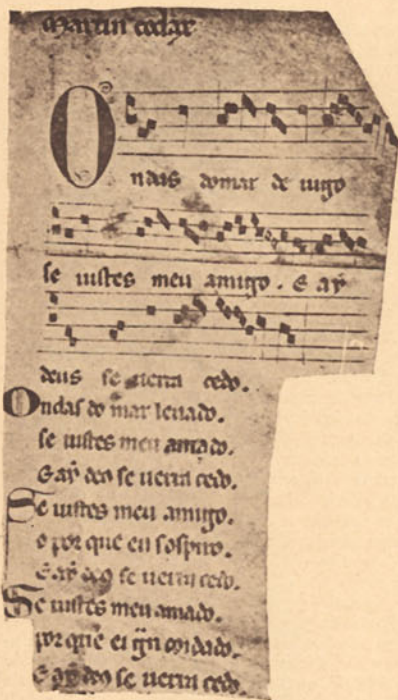 Martin codax
Ondas do mar de uigo
se uistes meu amigo. E ay
deus se uerra cedo.
Ondas do mar leuado.
se uistes meu amado.
E ay deo se uerra cedo.
Se uistes meu amigo.
o por que eu sospiro.
E ay deo se uerra cedo.
Se uistes meu amado.
por que ei gn coidado.
E ay deo se uerra cedo